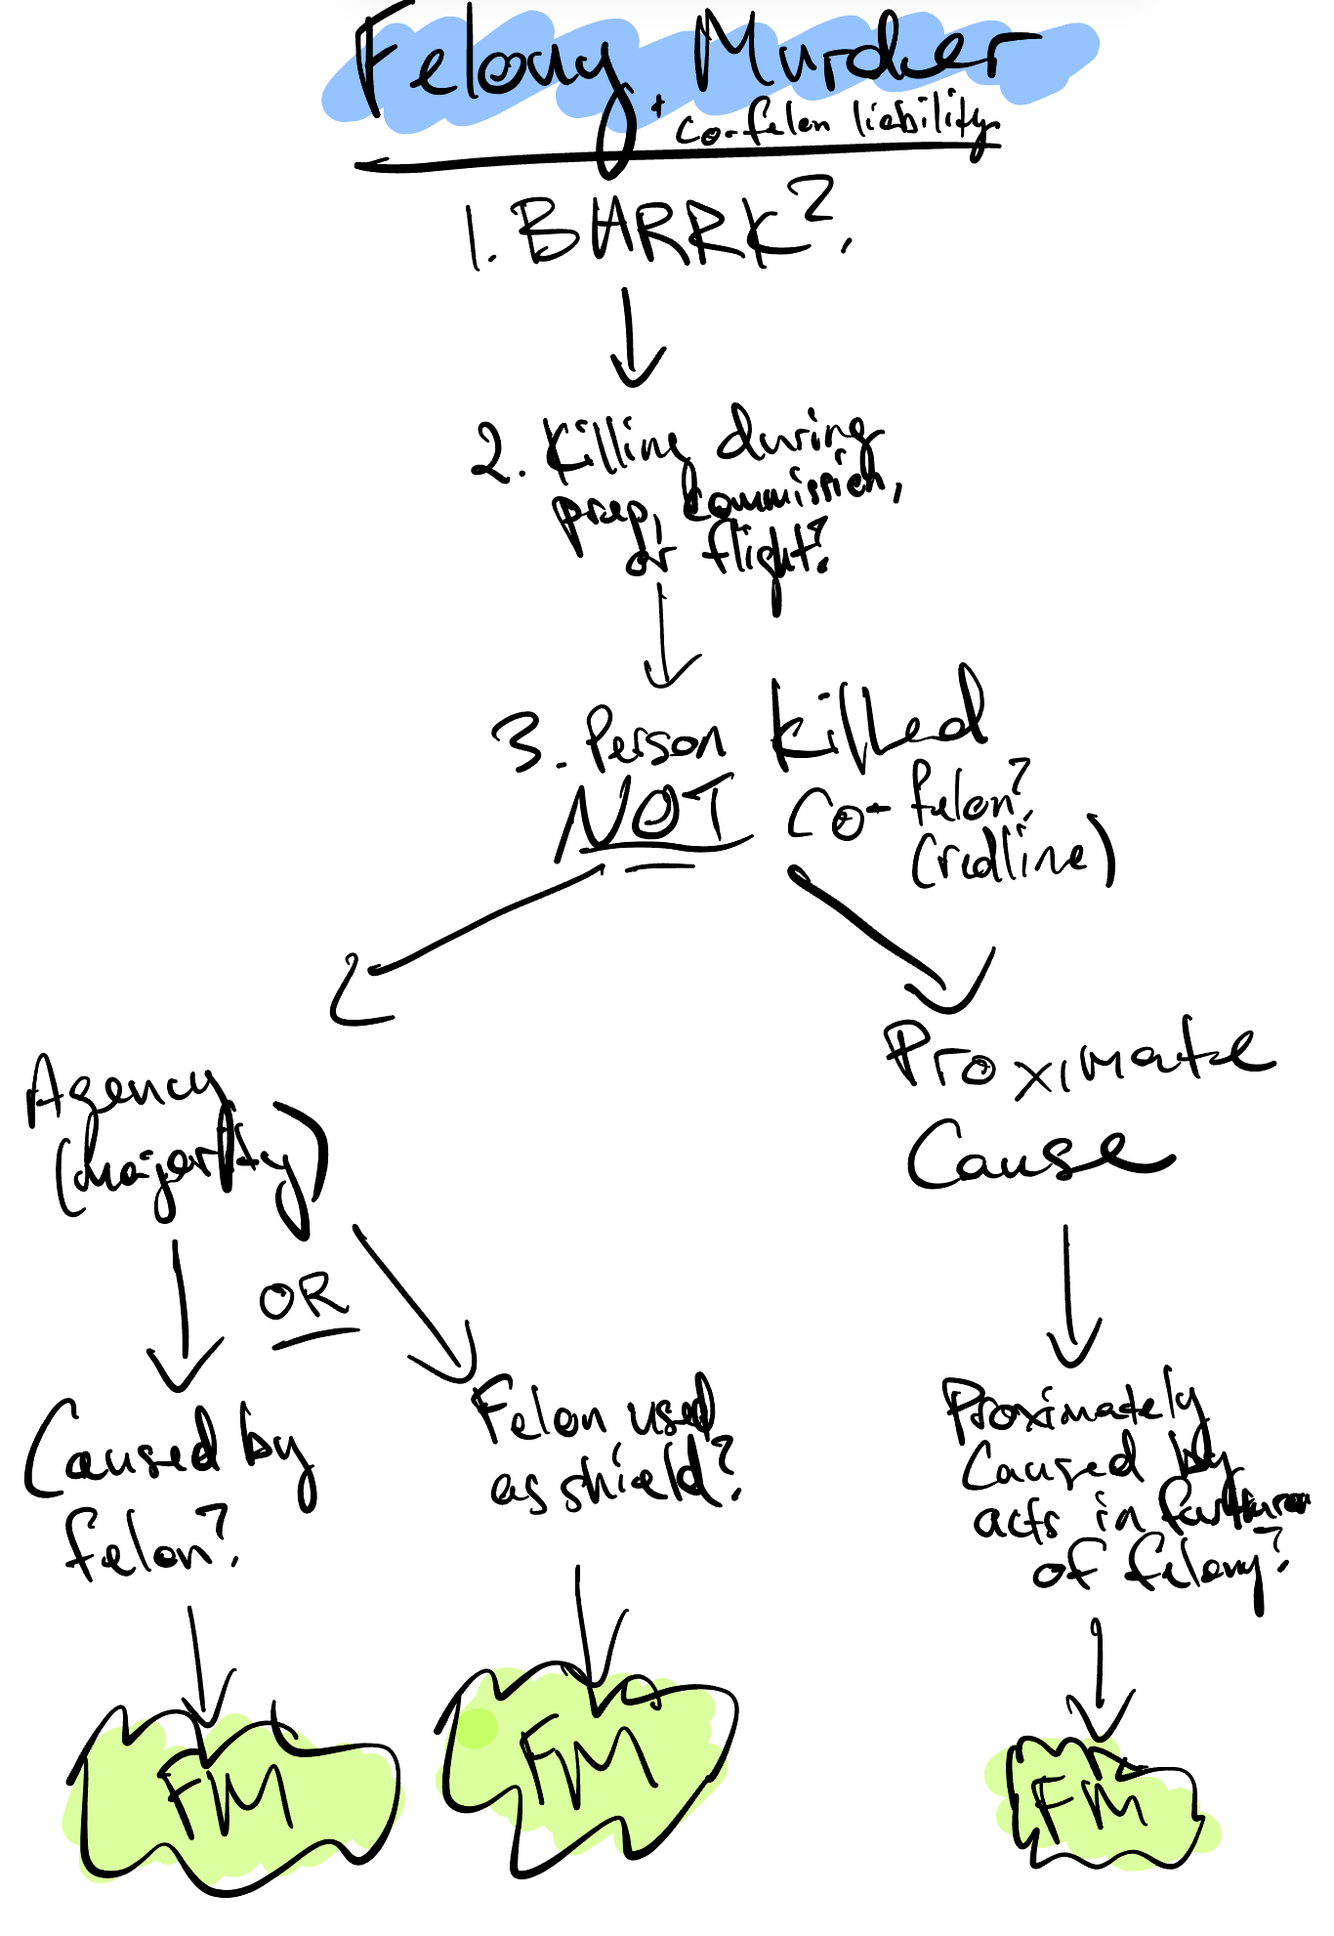 Felony Murder
+ co-felon liability
1. BARRK?
2. Killing during
prep, commission,
or flight?
3. Person killed
NOT co-felon?
(redline)
Agency
(majority)
Proximate
Cause
OR
Caused by
felon?
Felon used
as shield?
Proximately
caused by
acts in
of felony?
FM
FM
FM